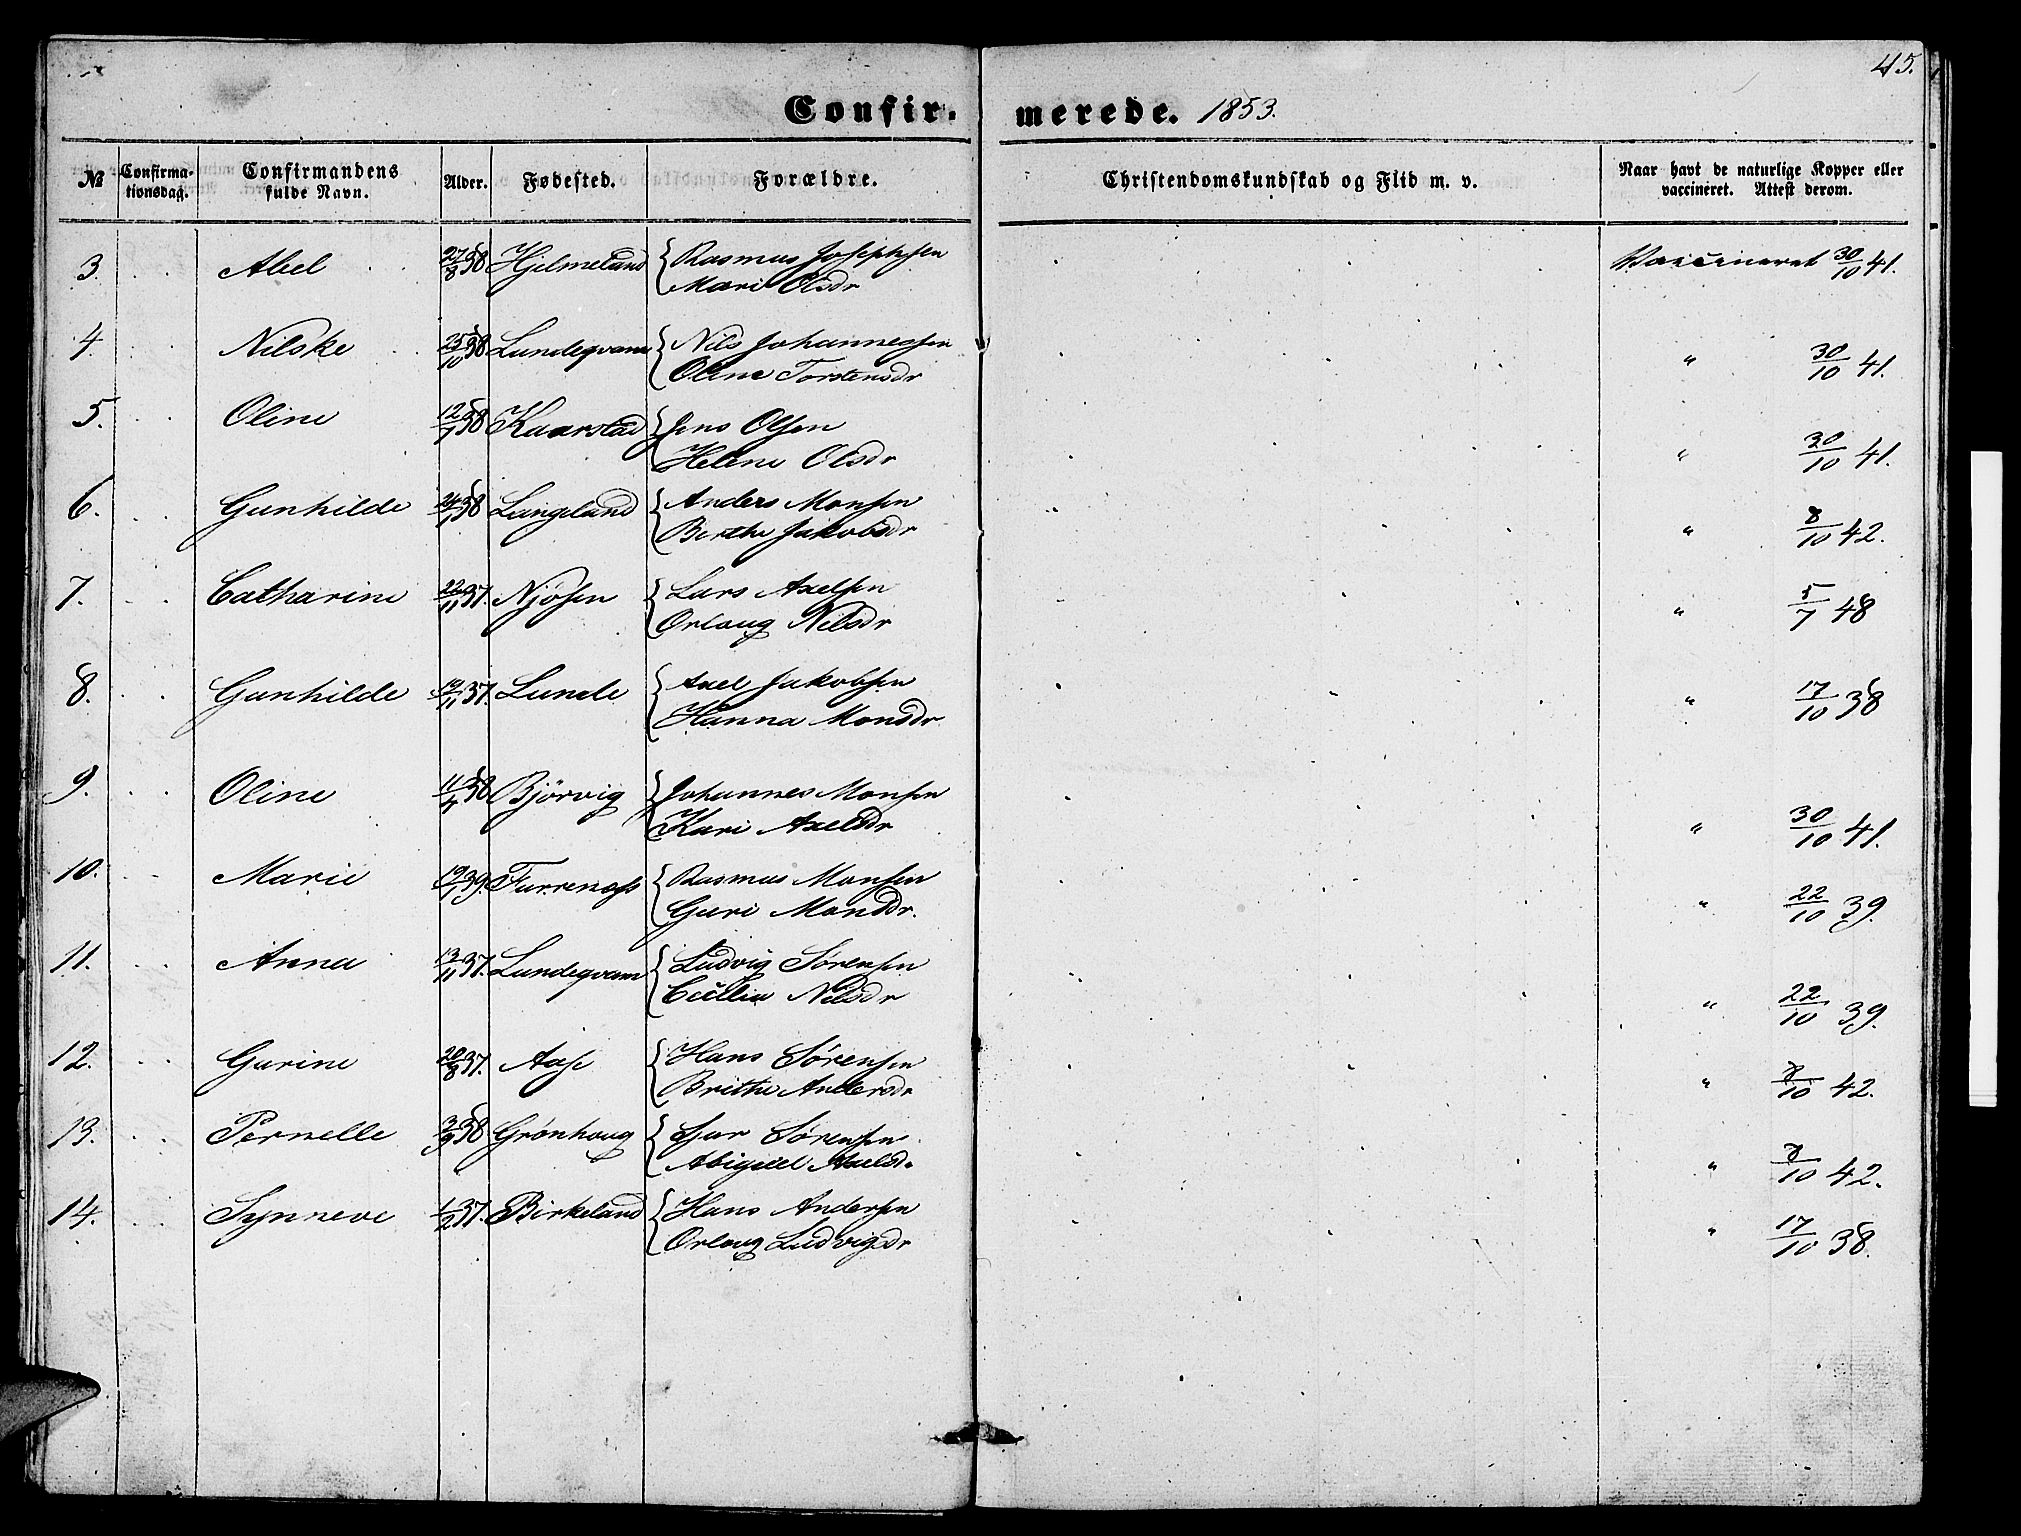 45.
Confir- merede. 1853.
№ Confirma-tionsdag. Confirmandens fulde Navn. Alder. Fødested. Forældre. Christendomskundskab og Flid m. v. Naar havt de naturlige Kopper eller vaccineret. Attest derom.
3. Abel 27/8 38 Hjelmeland Rasmus Josephsen Vaccineret 30/10 41.
Mari Olsdr
4. Nilske 25/10 38 Lundeqvam Nils Johannessen " 30/10 41.
Oline Torstensdr
5. Oline 12/7 38 Kaarstad Jens Olsen " 30/10 41.
Helene Olsdr
6. Gunhilde 24/1 38 Langeland Anders Monsen " 8/10 42.
Berthe Jakobsdr
7. Catharine 22/11 37. Njøsen Lars Axelsen " 5/7 48
Orlaug Nilsdr
8. Gunhilde 19/11 37. Lunde Axel Jakobsen " 17/10 38
Hanna Monsdr
9. Oline 11/4 38 Bjørvig Johannes Monsen " 30/10 41.
Kari Axelsdr
10. Marie 19/1 39. Furrenæs Rasmus Monsen " 22/10 39.
Guri Monsdr.
11. Anna 13/11 37. Lundeqvam Ludvig Sørensen " 22/10 39.
Cecilia Nilsdr
12. Gurine 20/8 37. Aase Hans Sørensen " 8/10 42.
Brithe Andersdr
13. Pernelle 3/9 38 Grønhaug Sjur Sørensen " 8/10 42.
Abigael Axelsd.
14. Synneve 1/2 37. Birkeland Hans Andersen " 17/10 38.
Orlaug Ludvigsdr